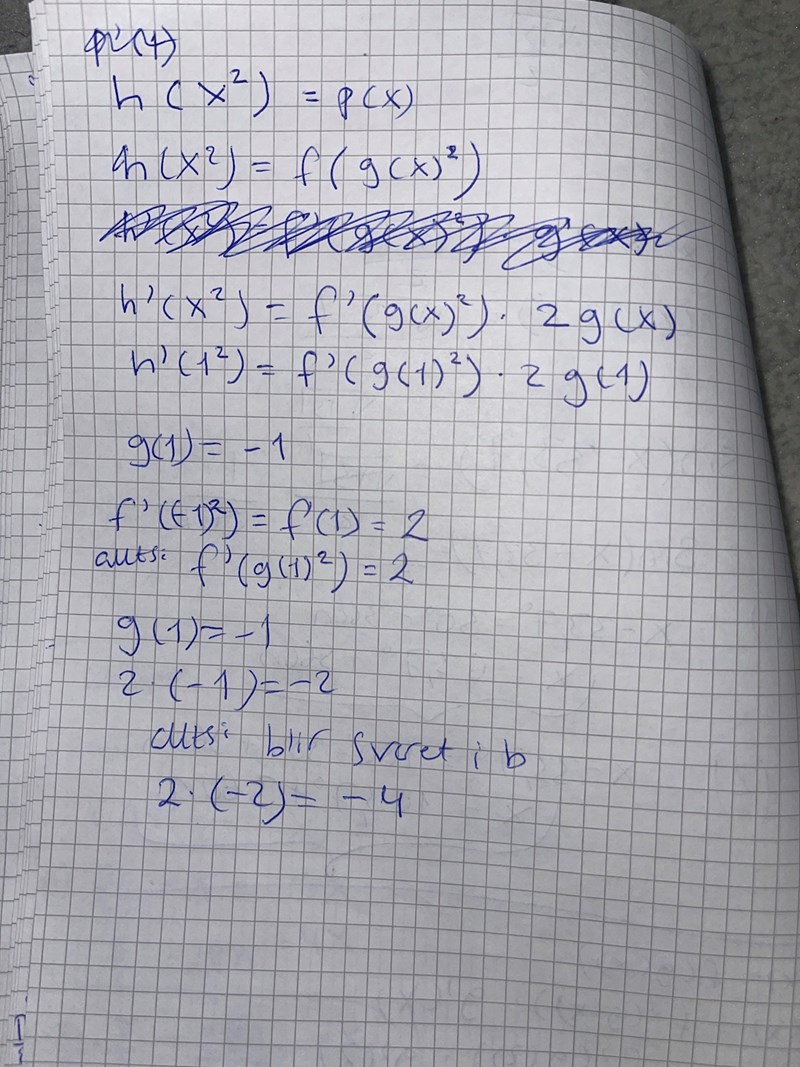 p'(1)
h(x²) = p(x)
h(x²) = f(g(x)²)
h'(x²) = f'(g(x)²) · 2g(x)
h'(1²) = f'(g(1)²) · 2g(1)
g(1) = -1
f'(-1)²) = f'(1) = 2
alltså: f'(g(1)²) = 2
g(1) = -1
2 · (-1) = -2
alltså: blir svaret i b
2 · (-2) = -4